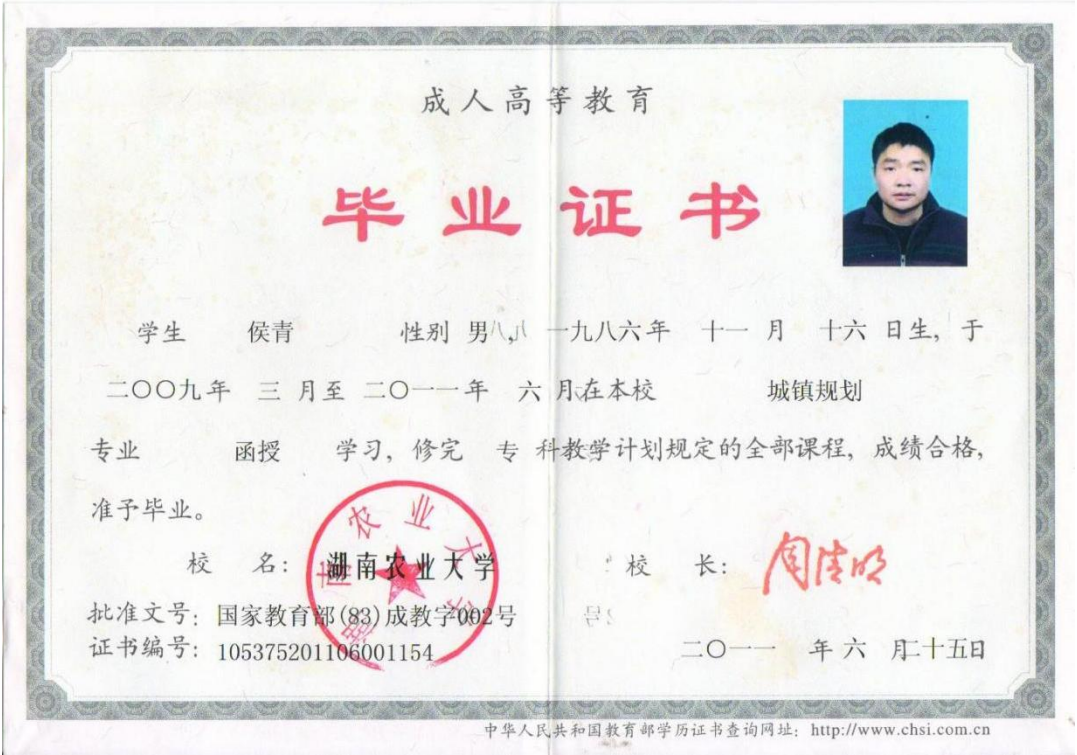 成人高等教育
毕业证书
学生 侯青 性别 男, 一九八六年 十一 月 十六 日生, 于
二〇〇九年 三 月至 二〇一一年 六 月在本校 城镇规划
专业 函授 学习, 修完 专 科教学计划规定的全部课程, 成绩合格,
准予毕业。
湖南农业大学
校 名: 湖南农业大学 校 长: 周清明
批准文号: 国家教育部(83)成教字002号
证书编号: 105375201106001154 二〇一一 年 六 月二十五日
中华人民共和国教育部学历证书查询网址: http://www.chsi.com.cn